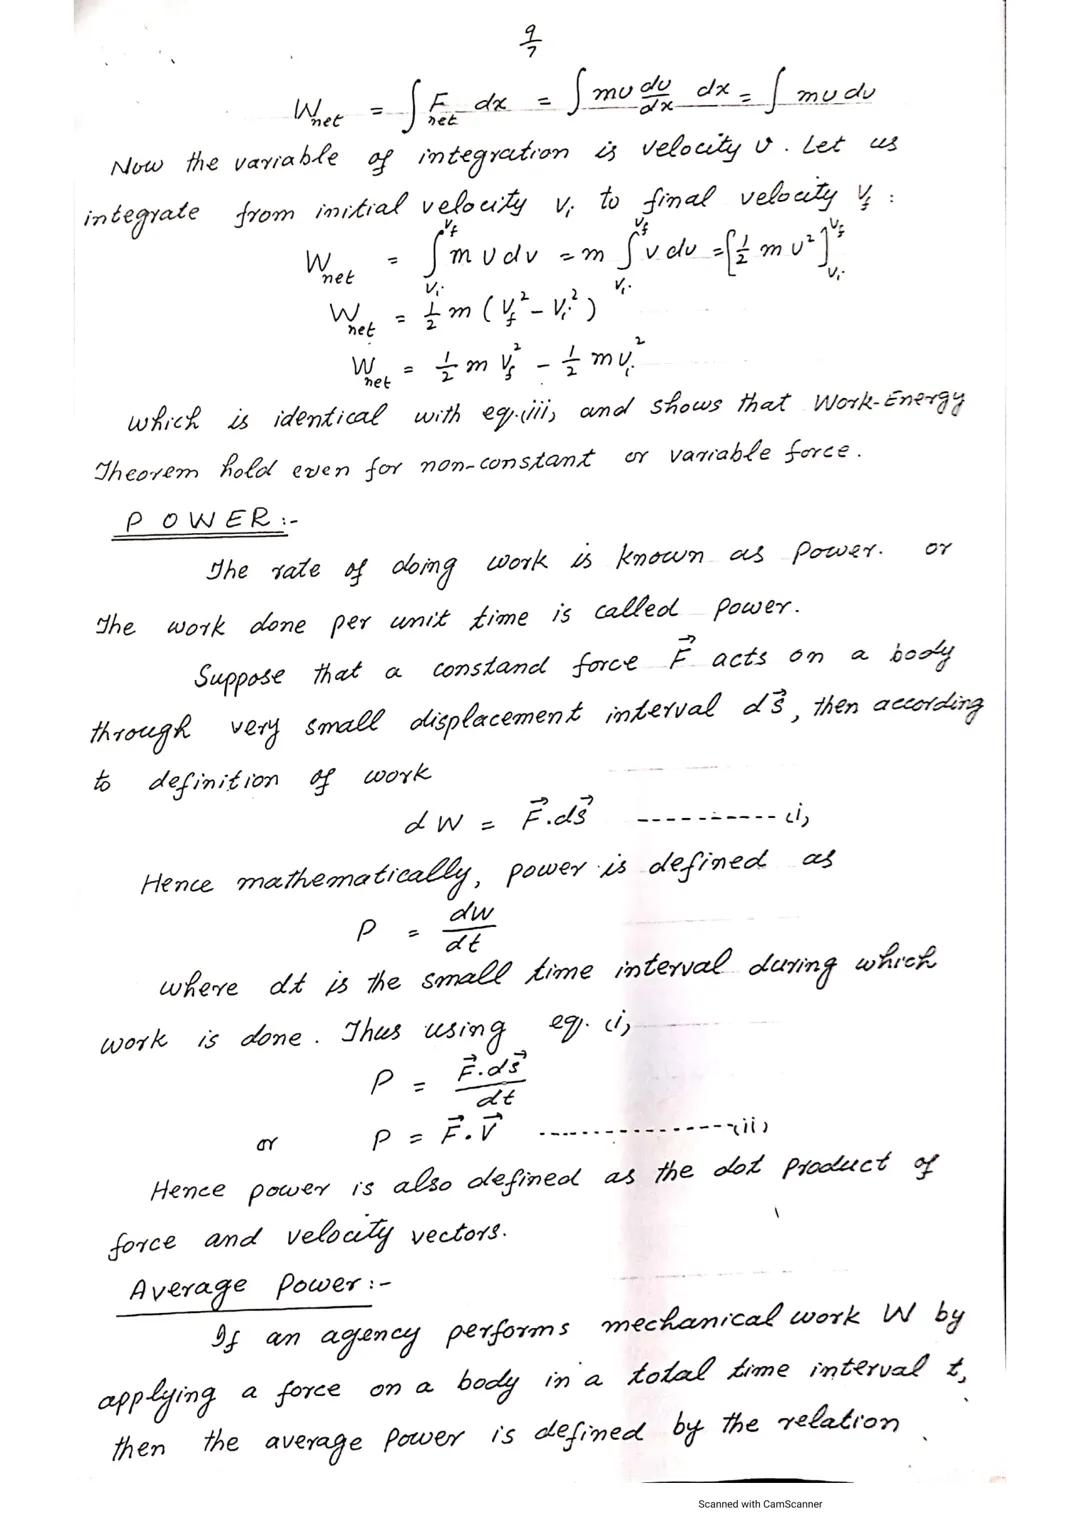 9/7
W_net = ∫ F_net dx = ∫ mv dv/dx dx = ∫ mv dv
Now the variable of integration is velocity v. Let us
integrate from initial velocity V_i to final velocity V_f :
W_net = ∫_{V_i}^{V_f} m v dv = m ∫_{V_i}^{V_f} v dv = [1/2 m v²]_{V_i}^{V_f}
W_net = 1/2 m (V_f² - V_i²)
W_net = 1/2 m V_f² - 1/2 m V_i²
which is identical with eq.(iii) and shows that Work-Energy
Theorem hold even for non-constant or variable force.
POWER:-
The rate of doing work is known as power. or
The work done per unit time is called power.
Suppose that a constand force F⃗ acts on a body
through very small displacement interval ds⃗, then according
to definition of work
dW = F⃗.ds⃗ ----------- (i)
Hence mathematically, power is defined as
P = dw/dt
where dt is the small time interval during which
work is done. Thus using eq. (i)
P = F⃗.ds⃗/dt
or P = F⃗.V⃗ ----------------- (ii)
Hence power is also defined as the dot product of
force and velocity vectors.
Average Power:-
If an agency performs mechanical work W by
applying a force on a body in a total time interval t,
then the average power is defined by the relation
Scanned with CamScanner